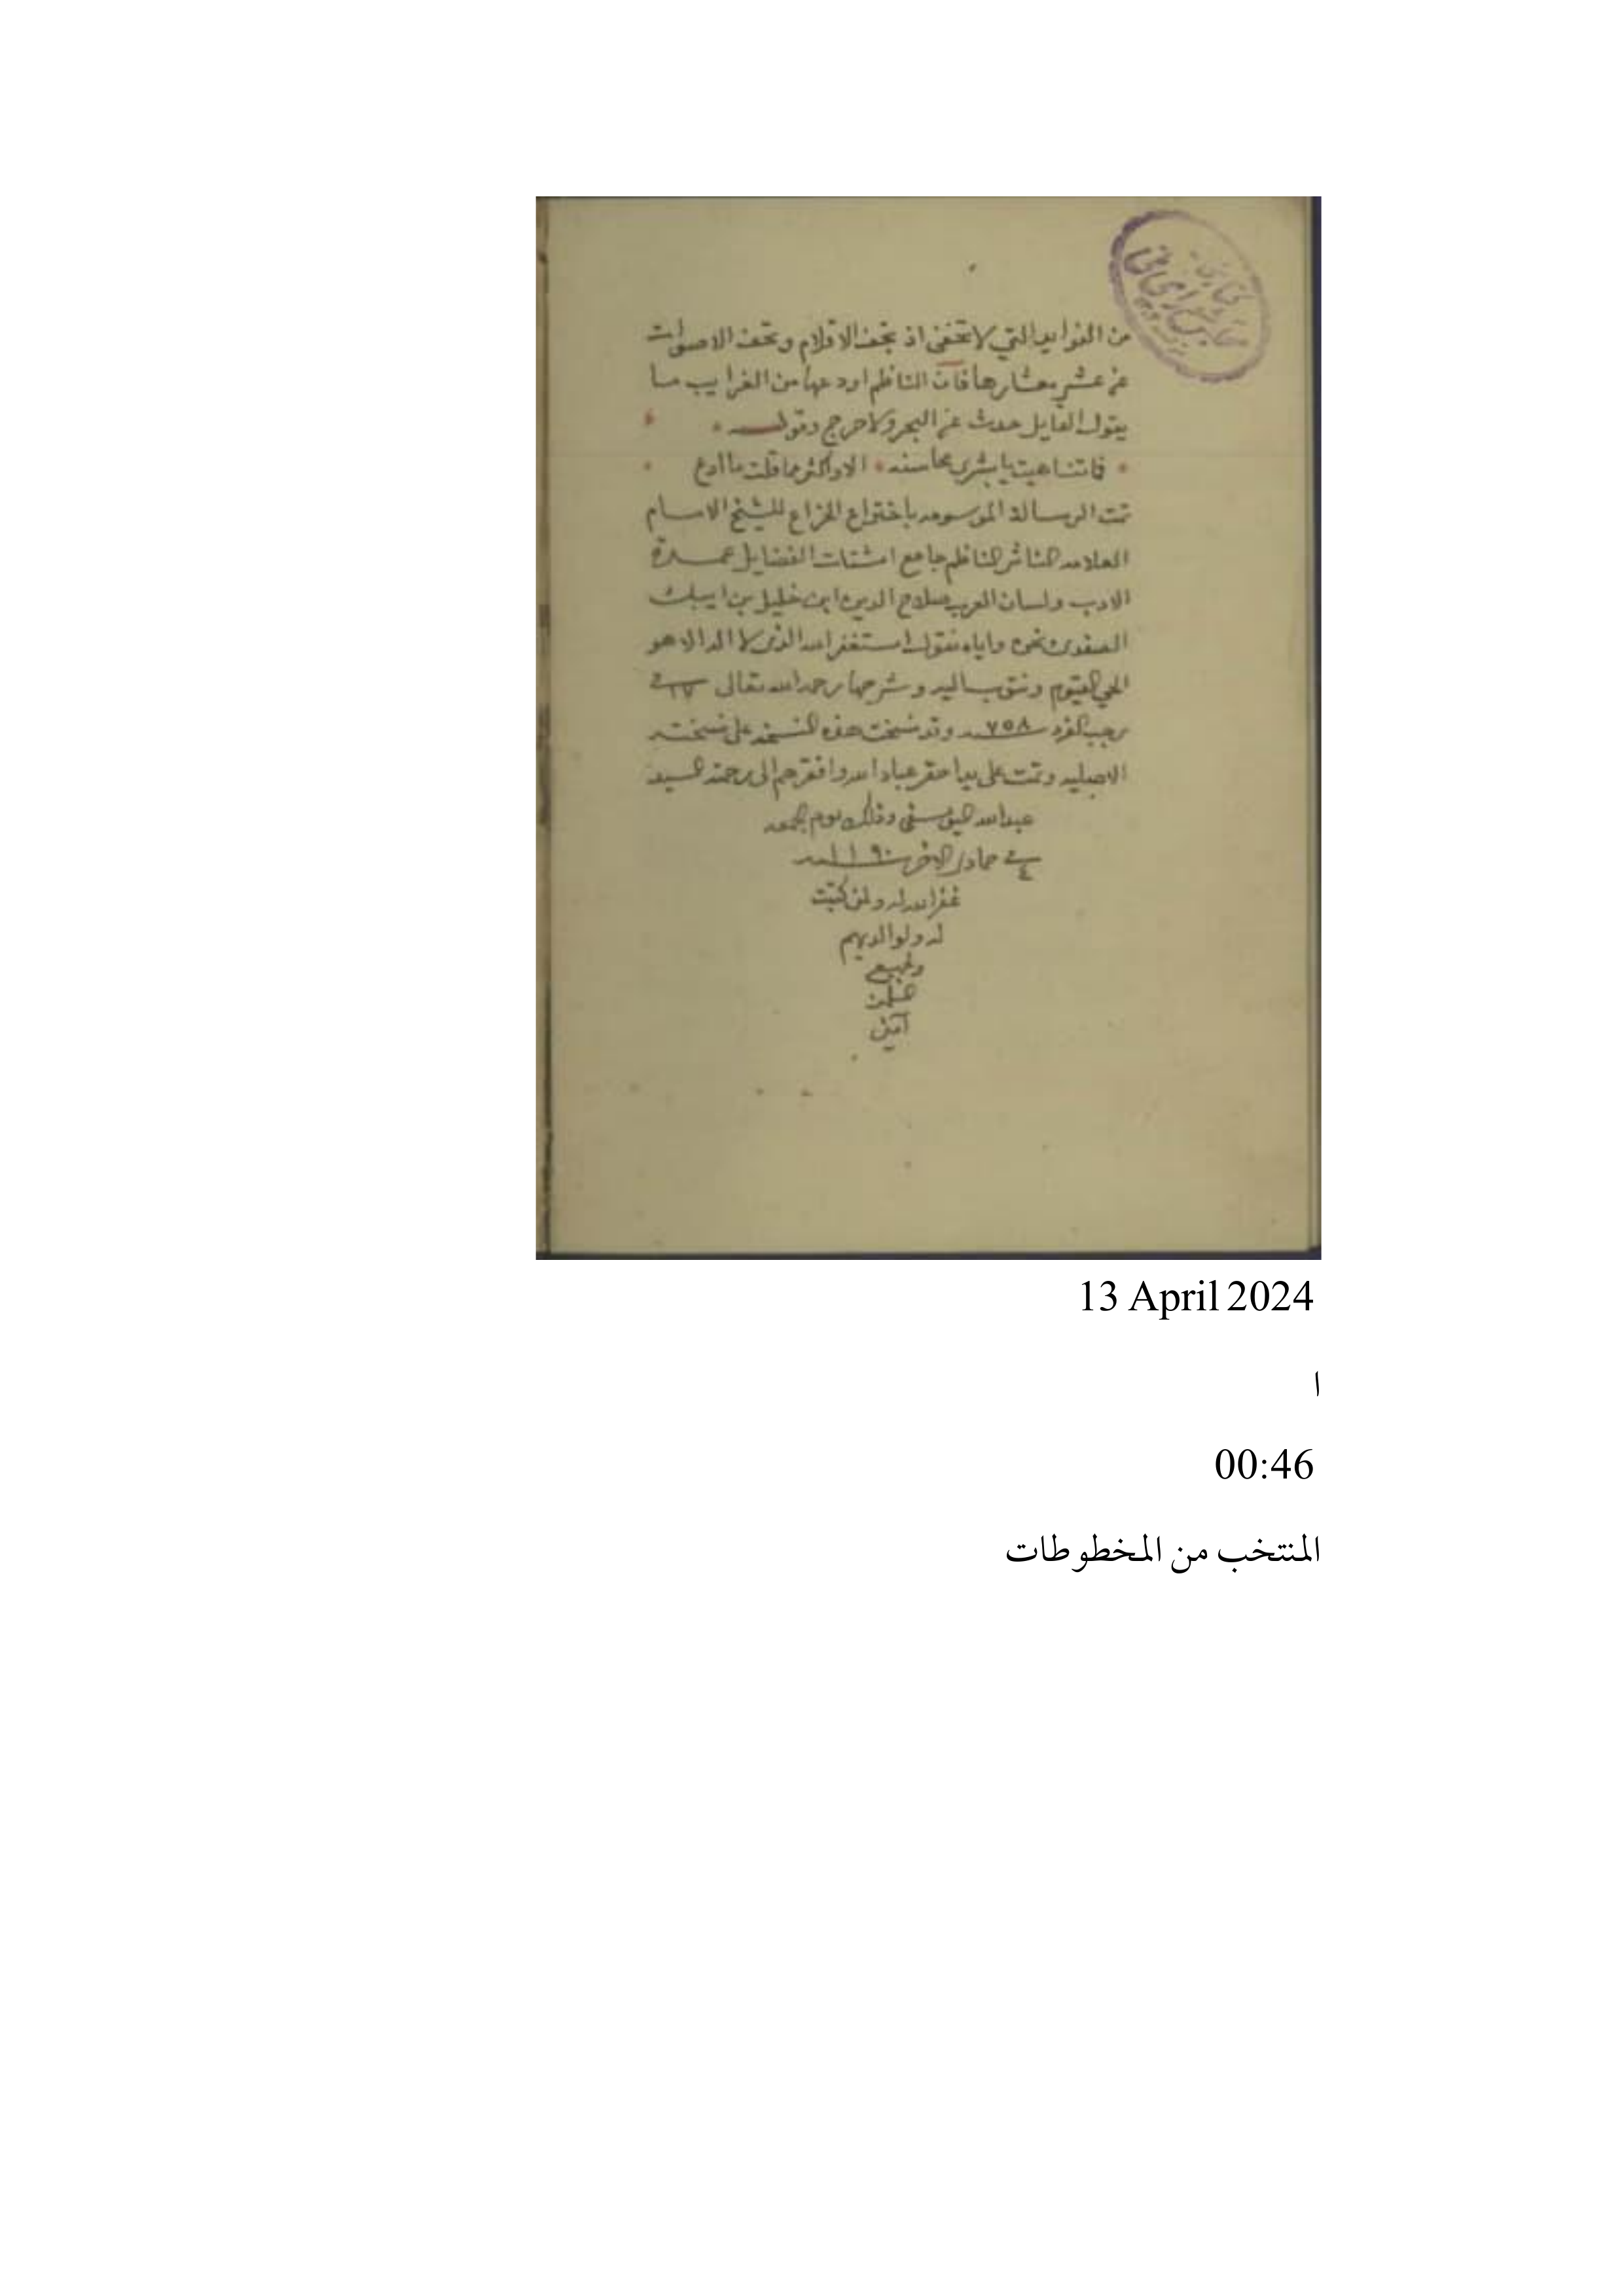 من الفوايد التي لا تخفى اذ تجف الاقلام وتخف الاصوات
عن عشر معشارها فان الناظم اودعها من الغرايب ما
يقول القايل حدث عن البحر ولا حرج وقوله
فما تناهيت يا بشرى محاسنه الا واكثر مما قلت ما ادع
تمت الرسالة الموسومه باختراع الخراع للشيخ الامام
العلامه الناثر الناظم جامع اشتات الفضايل عمدة
الادب ولسان العرب صلاح الدين ابن خليل بن ايبك
الصفدي نحن واياه نقول استغفر الله الذي لا اله الا هو
الحي القيوم ونتوب اليه وشرحها رحمه الله تعالى في ١٧
رجب الفرد سنه ٧٥٨ وقد نسخت هذه النسخه على نسخته
الاصليه وتمت على يد احقر عباد الله وافقرهم الى رحمته السيد
عبد الله وذلك يوم الجمعه
في ٤ جماد الاخر سنه ١١٩٠
غفر الله له ولمن كتبت
له ولوالديهم
ولجميع
المسلمين
آمين
13 April 2024
ا
00:46
المنتخب من المخطوطات